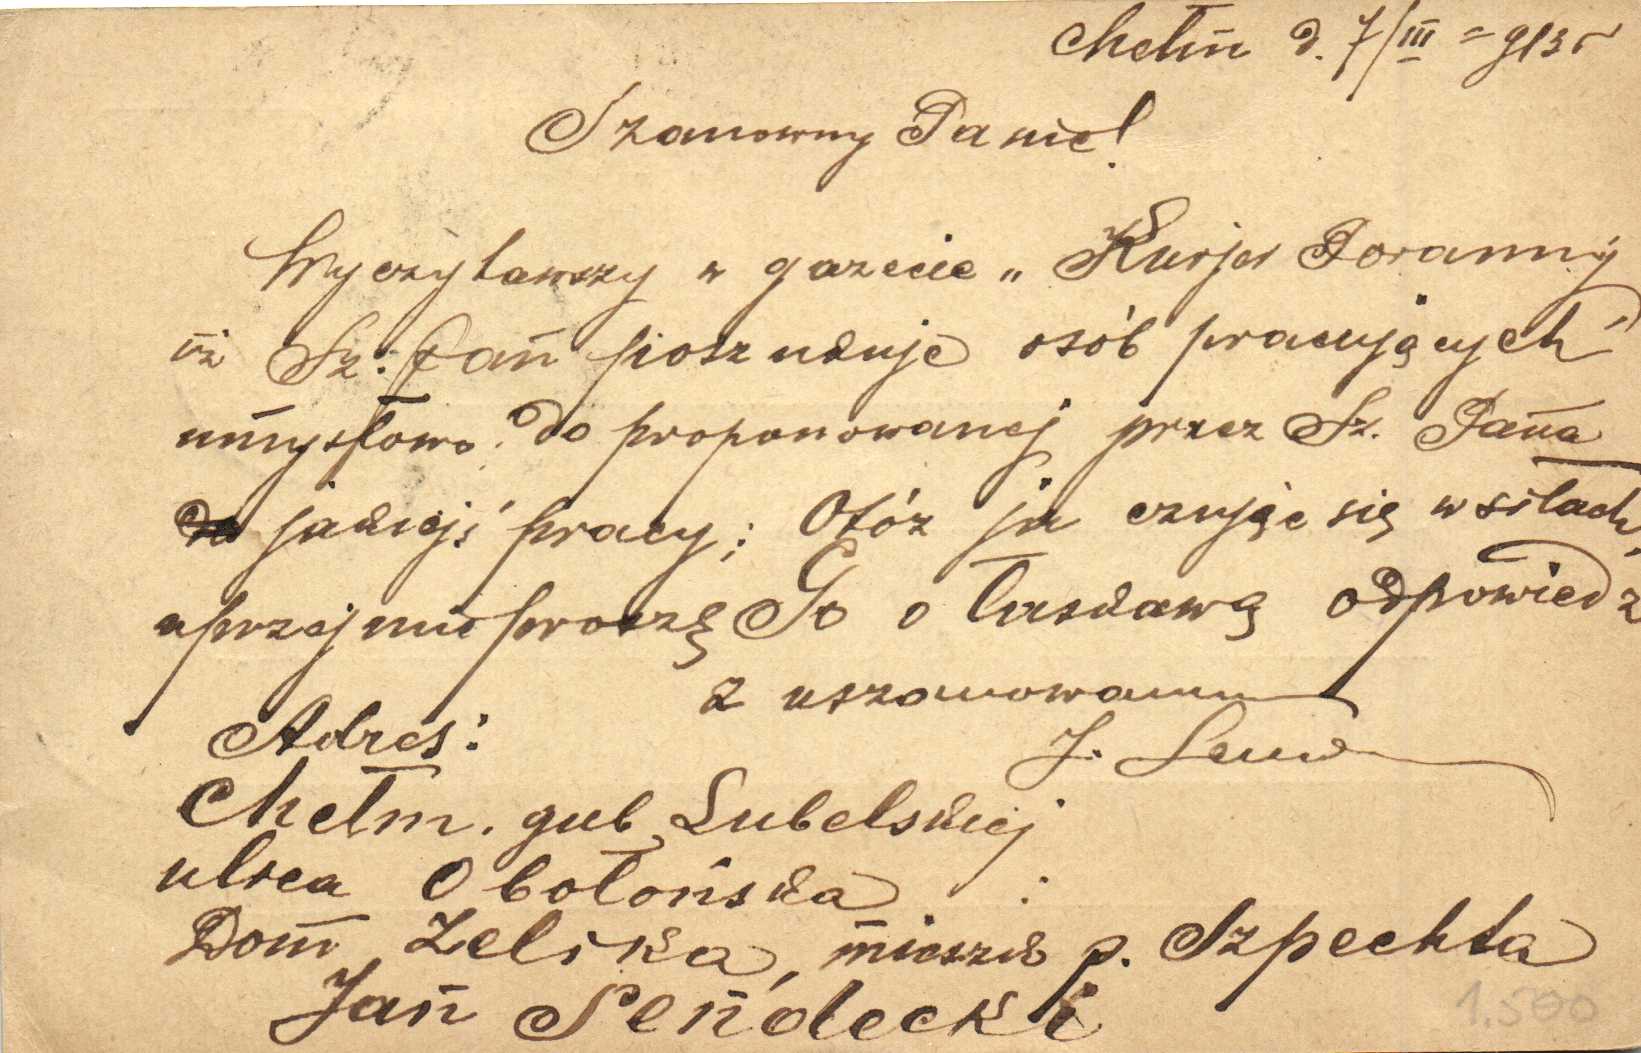 Chełm d. 7/III = 913 r
Szanowny Panie!
Wyczytawszy w gazecie „Kurjer Poranny
iż Sz: Pan poszukuje osób pracujących
umysłowo do proponowanej przez Sz. Pana
jakiejś pracy; Otóż ja czując się w siłach,
uprzejmie proszę Go o łaskawą odpowiedz
z uszanowaniem
Adres: J.
Chełm. gub. Lubelskiej
ulica Obołońska
Dom Zelika, mieszk p. Szpechta
Jan Sendecki
1.500